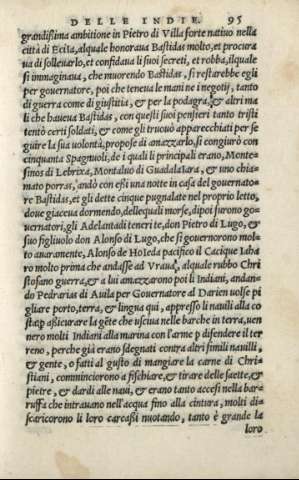 DELLE INDIE. 95
grandissima ambitione in Pietro di Villa forte natiuo nella
città di Ecita, alquale honoraua Bastidas molto, et procura
ua di solleuarlo, et confidaua li suoi secreti, et robba, ilquale
si immaginaua, che muorendo Bastidas, si restarebbe egli
per gouernatore, poi che teneua le mani ne i negotij, tanto
di guerra come di giustitia, & per la podagra, & altri ma
li che haueua Bastidas, con questi suoi pensieri tanto tristi
tentò certi soldati, & come gli truouò apparecchiati per se
guire la sua uolontà, propose di amazzarlo, si congiurò con
cinquanta Spagnuoli, de i quali li principali erano, Monte-
sinos di Lebrixa, Montaluo di Guadalaiara, & uno chia-
mato porras, andò con essi una notte in casa del gouernato-
re Bastidas, et gli dette cinque pugnalate nel proprio letto,
doue giaceua dormendo, dellequali morse, dipoi furono go-
uernatori, gli Adelantadi tenerite, don Pietro di Lugo, &
suo figliuolo don Alonso di Lugo, che si gouernorono mol-
to auaramente, Alonso de Hoieda pacifico il Cacique Iaha
ro molto prima che andasse ad Vraua, alquale rubbo Chri
stofano guerra, & a lui amazzarono poi li Indiani, andan-
do Pedrarias di Auila per Gouernatore al Darien uolse pi
gliare porto, terra, & lingua qui, appresso li nauili alla co
sta ꝑ assicurare la gẽte che usciua nelle barche in terra, uen
nero molti Indiani alla marina con l'arme ꝑ difendere il ter
reno, perche già erano sdegnati contra altri simili nauili,
& gente, o fatti al gusto di mangiare la carne di Chri-
stiani, comminciorono a fischiare, & tirare delle saette, &
pietre, & dardi alle naui, & erano tanto accesi nella bar-
ruffa che intrauano nell'acqua fino alla cintura, molti di-
scaricorono li loro carcassi nuotando, tanto è grande la
loro